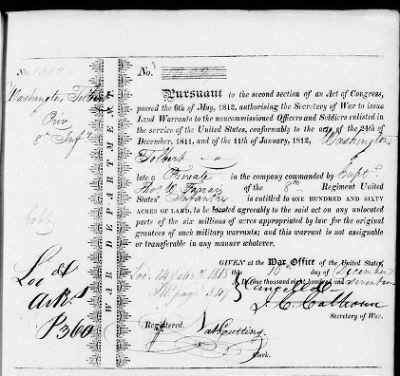 No.
No.
Washington Tolbert
Priv
8th Inft
WAR DEPARTMENT
Pursuant to the second section of an Act of Congress,
passed the 6th of May, 1812, authorising the Secretary of War to issue
Land Warrants to the noncommissioned Officers and Soldiers enlisted
in the service of the United States, conformably to the acts of the 24th of
December, 1811, and of the 11th of January, 1812, Washington
Tolbert
late a Private in the company commanded by Capt
of the 8th Regiment United
States' Infantry is entitled to ONE HUNDRED AND SIXTY
ACRES OF LAND, to be located agreeably to the said act on any unlocated
parts of the six millions of acres appropriated by law for the original
grantees of such military warrants; and this warrant is not assignable
or transferable in any manner whatever.
GIVEN at the War Office of the United States,
this day of December
one thousand eight hundred and seventeen
Loc d
Arks
P 360
J. C. Calhoun
Secretary of War.
Registered.
Clerk.